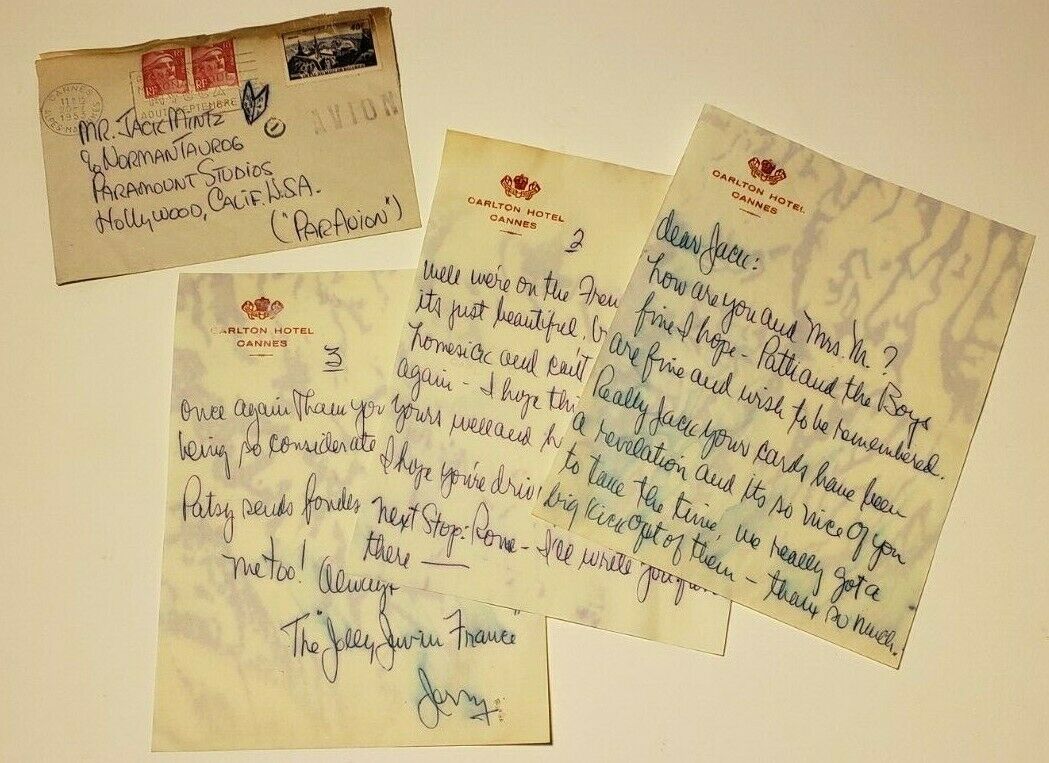 CANNES
1953
AOUT SEPTEMBRE
RF
RF
AVION
MR. JACK MINTZ
% NORMAN TAUROG
PARAMOUNT STUDIOS
HOLLYWOOD, CALIF. U.S.A.
("PAR AVION")
CARLTON HOTEL
CANNES
dear Jack:
how are you and Mrs. M. ?
fine I hope - Patti and the Boys
are fine and wish to be remembered.
Really Jack your cards have been
a revelation and its so nice of you
to take the time, we really got a
big kick out of them - thanx so much.
CARLTON HOTEL
CANNES
2
well we're on the Fren
its just beautiful,
homesick and can't
again - I hope thi
yours well and h
I hope you're driv
next Stop: Rome - I'll write you
there
CARLTON HOTEL
CANNES
3
once again Thank you
being so considerate
Patsy sends fondes
me too! Always
The "Jolly Jew in France"
Jerry